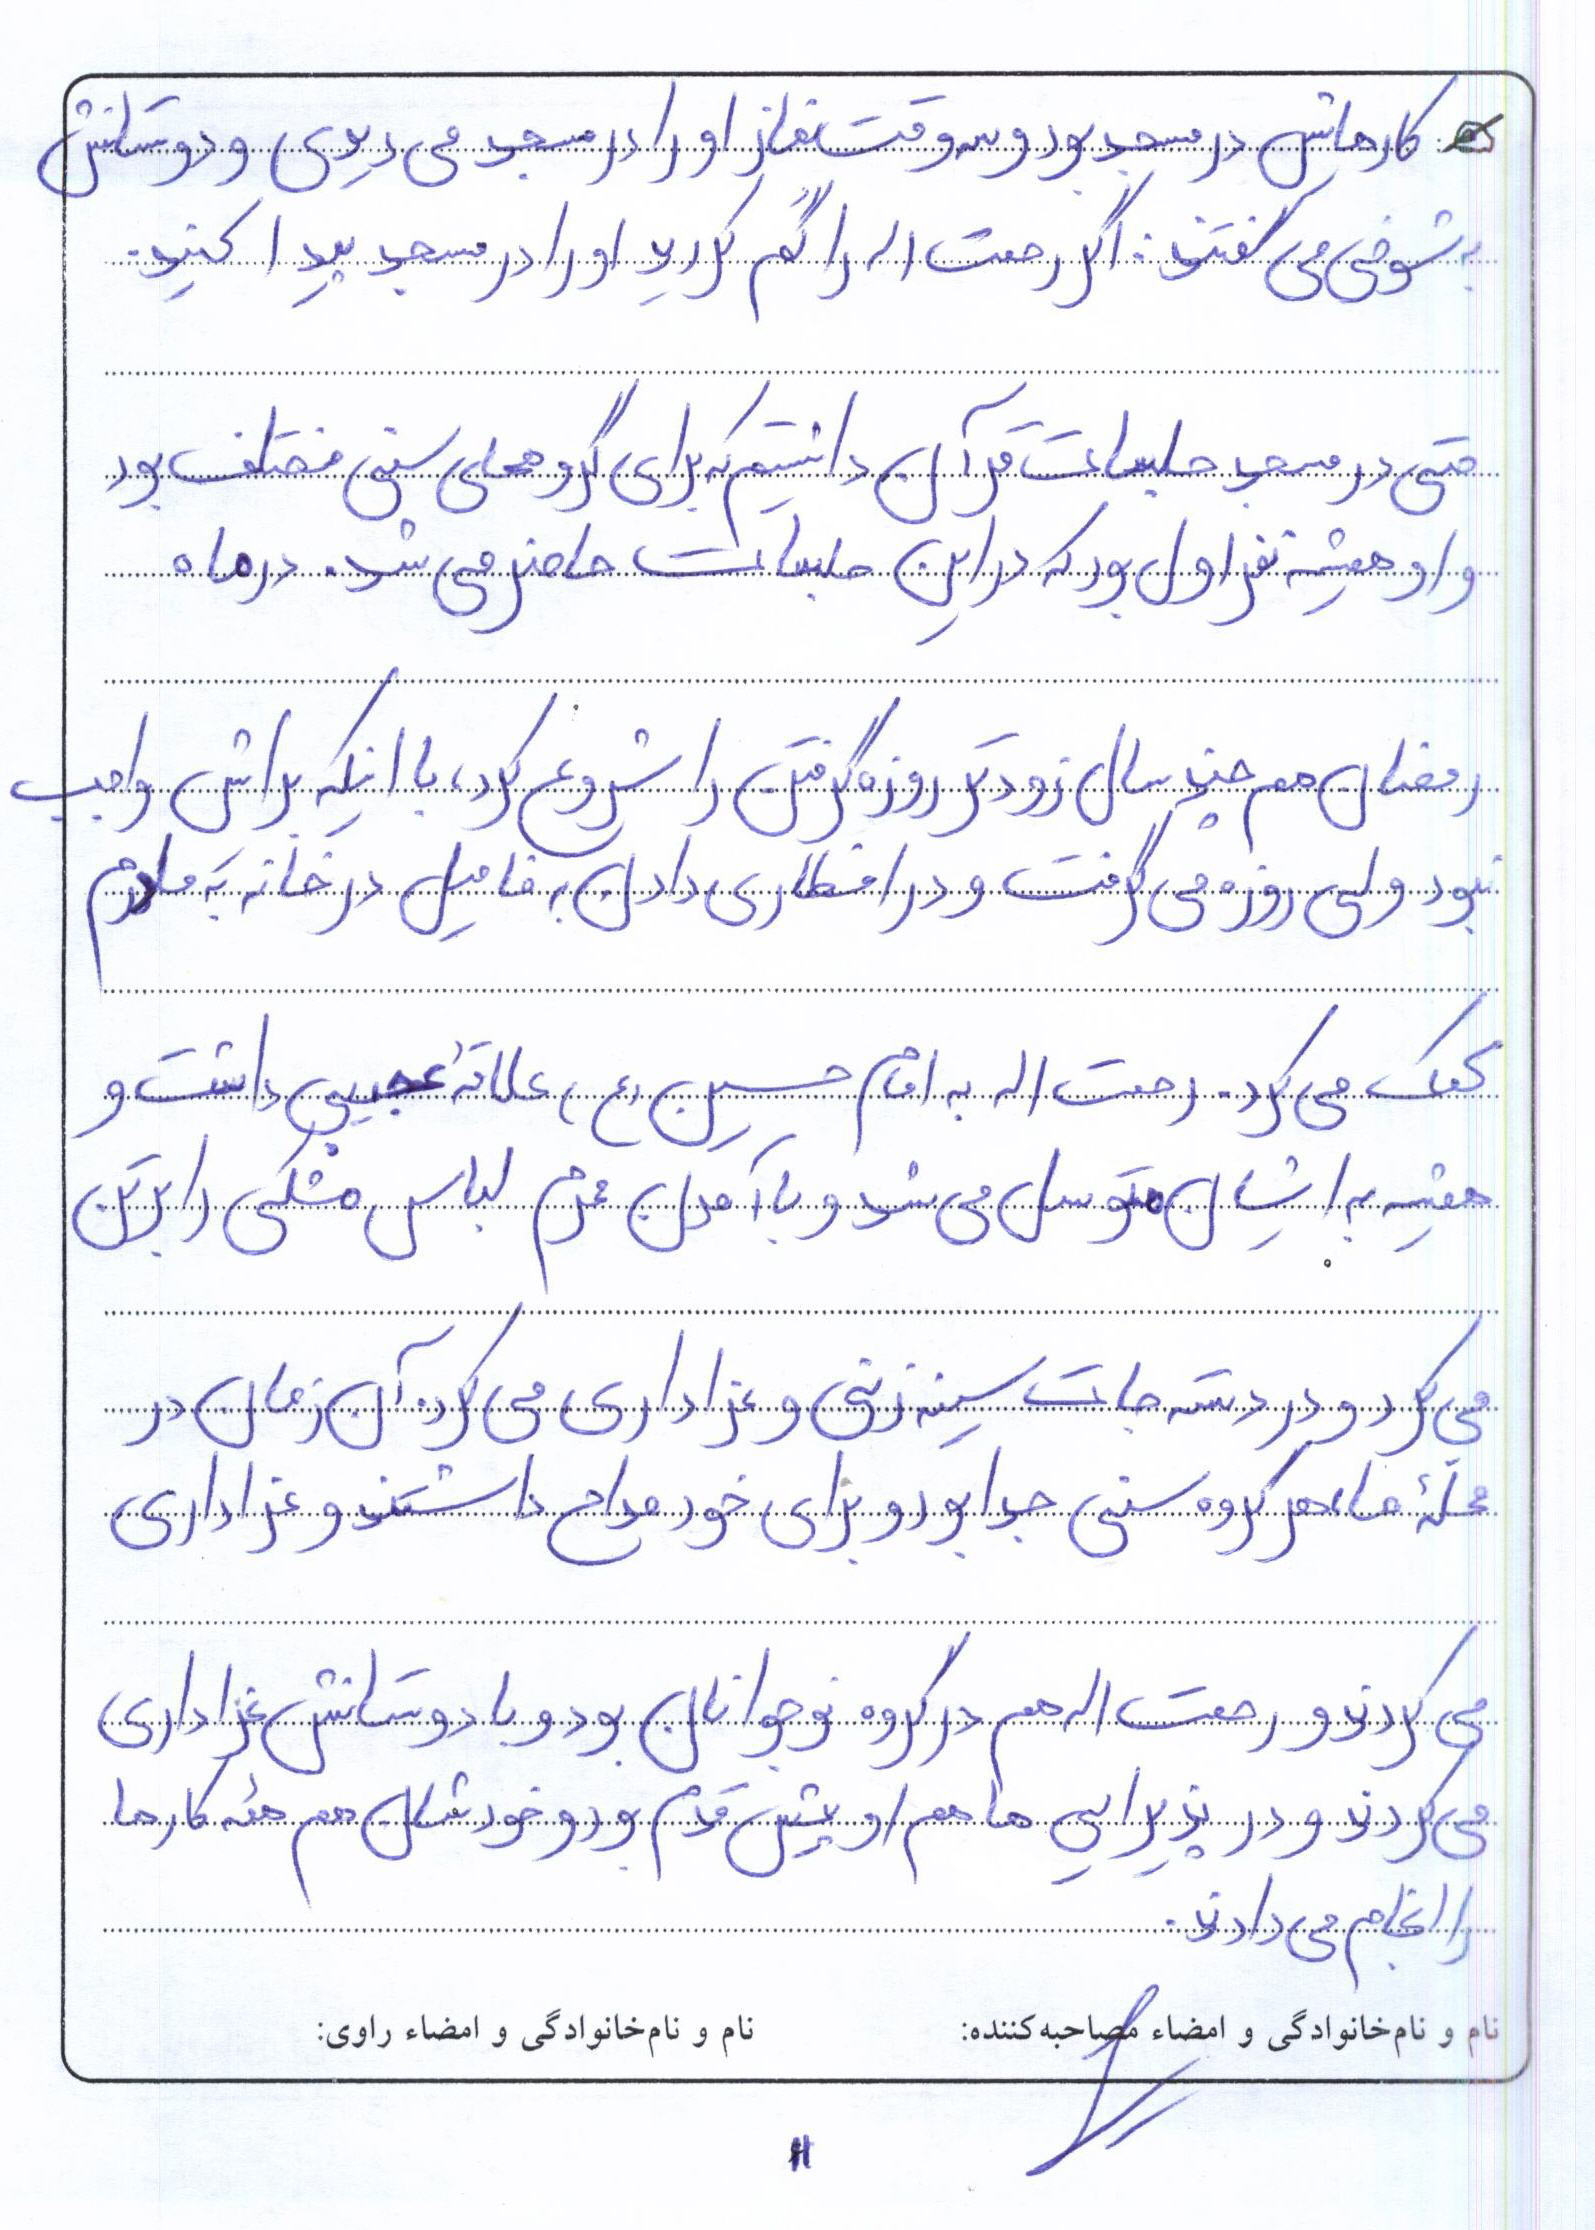 کارهایش در مسجد بود و سه وقت نماز او را در مسجد می دیدی و دوستانش
به شوخی می گفتند: اگر رحمت اله را گم کردید او را در مسجد پیدا کنید.
حتی در مسجد جلسات قرآن داشتیم که برای گروههای سنی مختلف بود
و او همیشه نفر اول بود که در این جلسات حاضر می شد. در ماه
رمضان هم چند سال زودتر روزه گرفتن را شروع کرد، با اینکه براش واجب
نبود ولی روزه می گرفت و در افطاری دادن به فامیل در خانه به مادرم
کمک می کرد. رحمت اله به امام حسین (ع) علاقۀ عجیبی داشت و
همیشه به ایشان متوسل می شد و با آمدن محرم لباس مشکی را بر تن
می کرد و در دسته جات سینه زنی و عزاداری می کرد. آن زمان در
محلۀ ما، هر گروه سنی جدا بود و برای خود مداح داشتند و عزاداری
می کردند و رحمت اله هم در گروه نوجوانان بود و با دوستانش عزاداری
می کردند و در پذیرایی ها هم او پیش قدم بود و خودشان هم همۀ کارها
را انجام می دادند.
نام و نام‌خانوادگی و امضاء مصاحبه‌کننده: نام و نام‌خانوادگی و امضاء راوی: